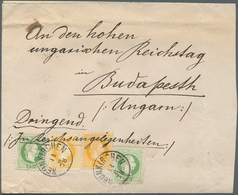 An den hohen
ungarischen Reichstag
in
Budapesth
(Ungarn)
Dringend.
(In Reichsangelegenheiten)